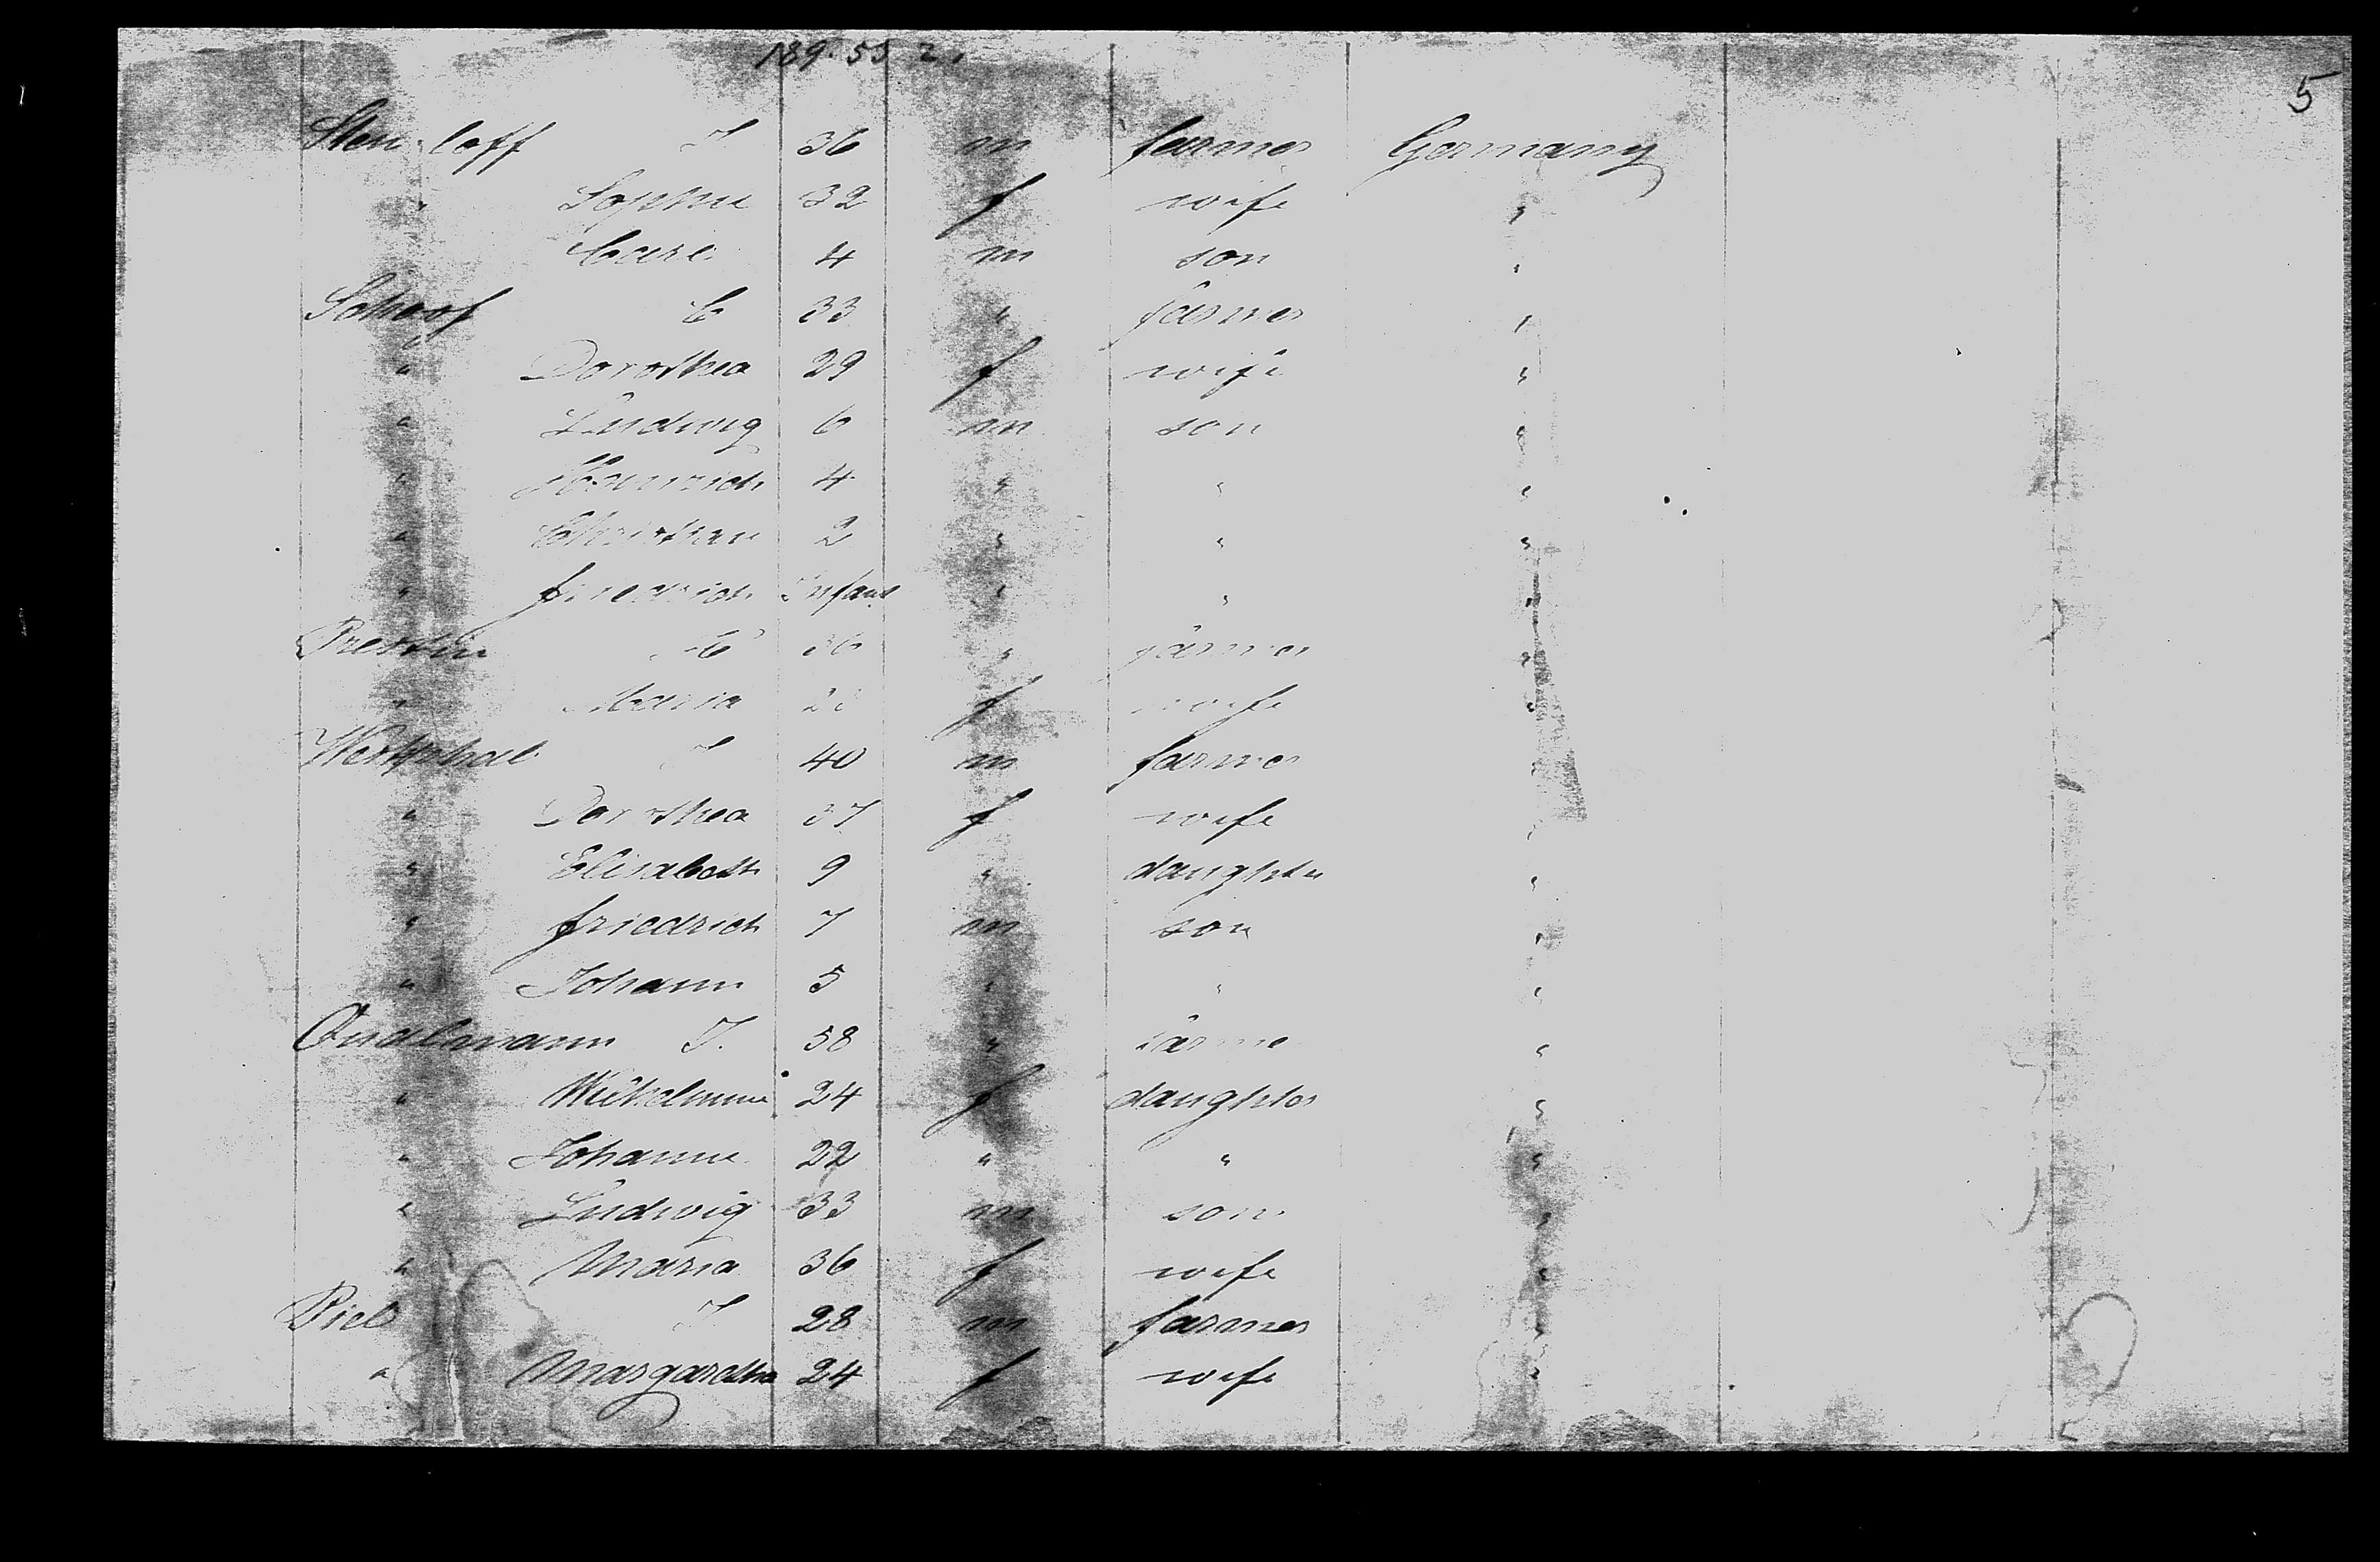 189. 55 2.
5
Sten loff J 36 m farmer Germany
" Sophie 32 f wife "
Carl 4 m son "
Schoof C 33 " farmer "
" Dorothea 29 f wife "
" Ludwig 6 m son "
" Heinrich 4 " " "
" Christian 2 " " "
" friedrich Infant " " "
Prestin C 36 " farmer "
" Maria f wife "
Westphal J 40 m farmer "
" Dorothea 37 f wife "
" Elisabeth 9 " daughter "
" friedrich 7 m son "
" Johann 5 " " "
Qualmann J. 58 " farmer "
" Wilhelmine 24 f daughter "
" Johanne 22 " " "
" Ludwig 33 m son "
" Maria 36 f wife "
Piel J 28 m farmer "
" Margaretha 24 f wife "